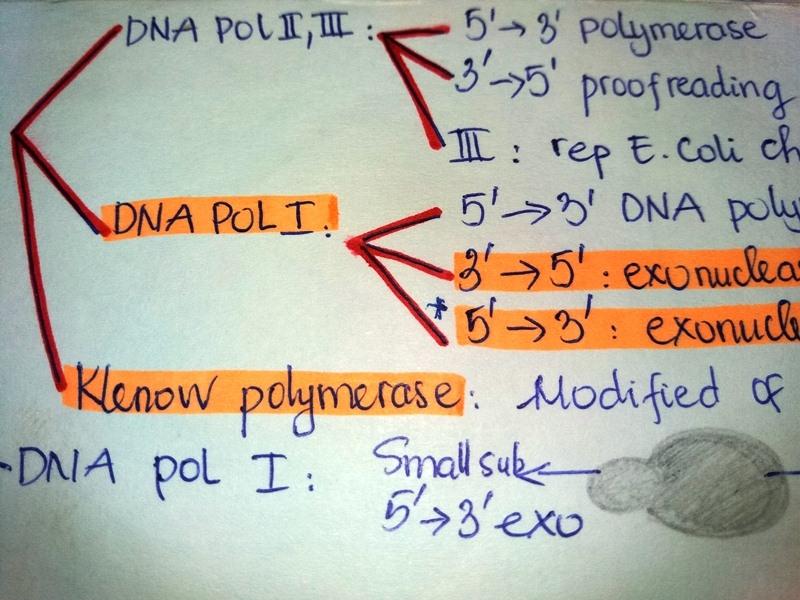 DNA Pol II, III :
5' → 3' polymerase
3' → 5' proofreading
III : rep E. Coli ch
DNA POL I :
5' → 3' DNA poly
3' → 5' : exonuclea
* 5' → 3' : exonucle
Klenow polymerase : Modified of
-DNA pol I : Small sub
5' → 3' exo